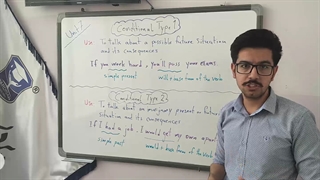 Unit 7
Conditional Type 1
Use: To talk about a possible future situation
and its consequences
If you work hard, you'll pass your exams.
simple present will + base form of the verb
Conditional Type 2
Use: To talk about an imaginary present or future
situation and its consequences
If I had a job, I would my own
simple past would + base form of the verb